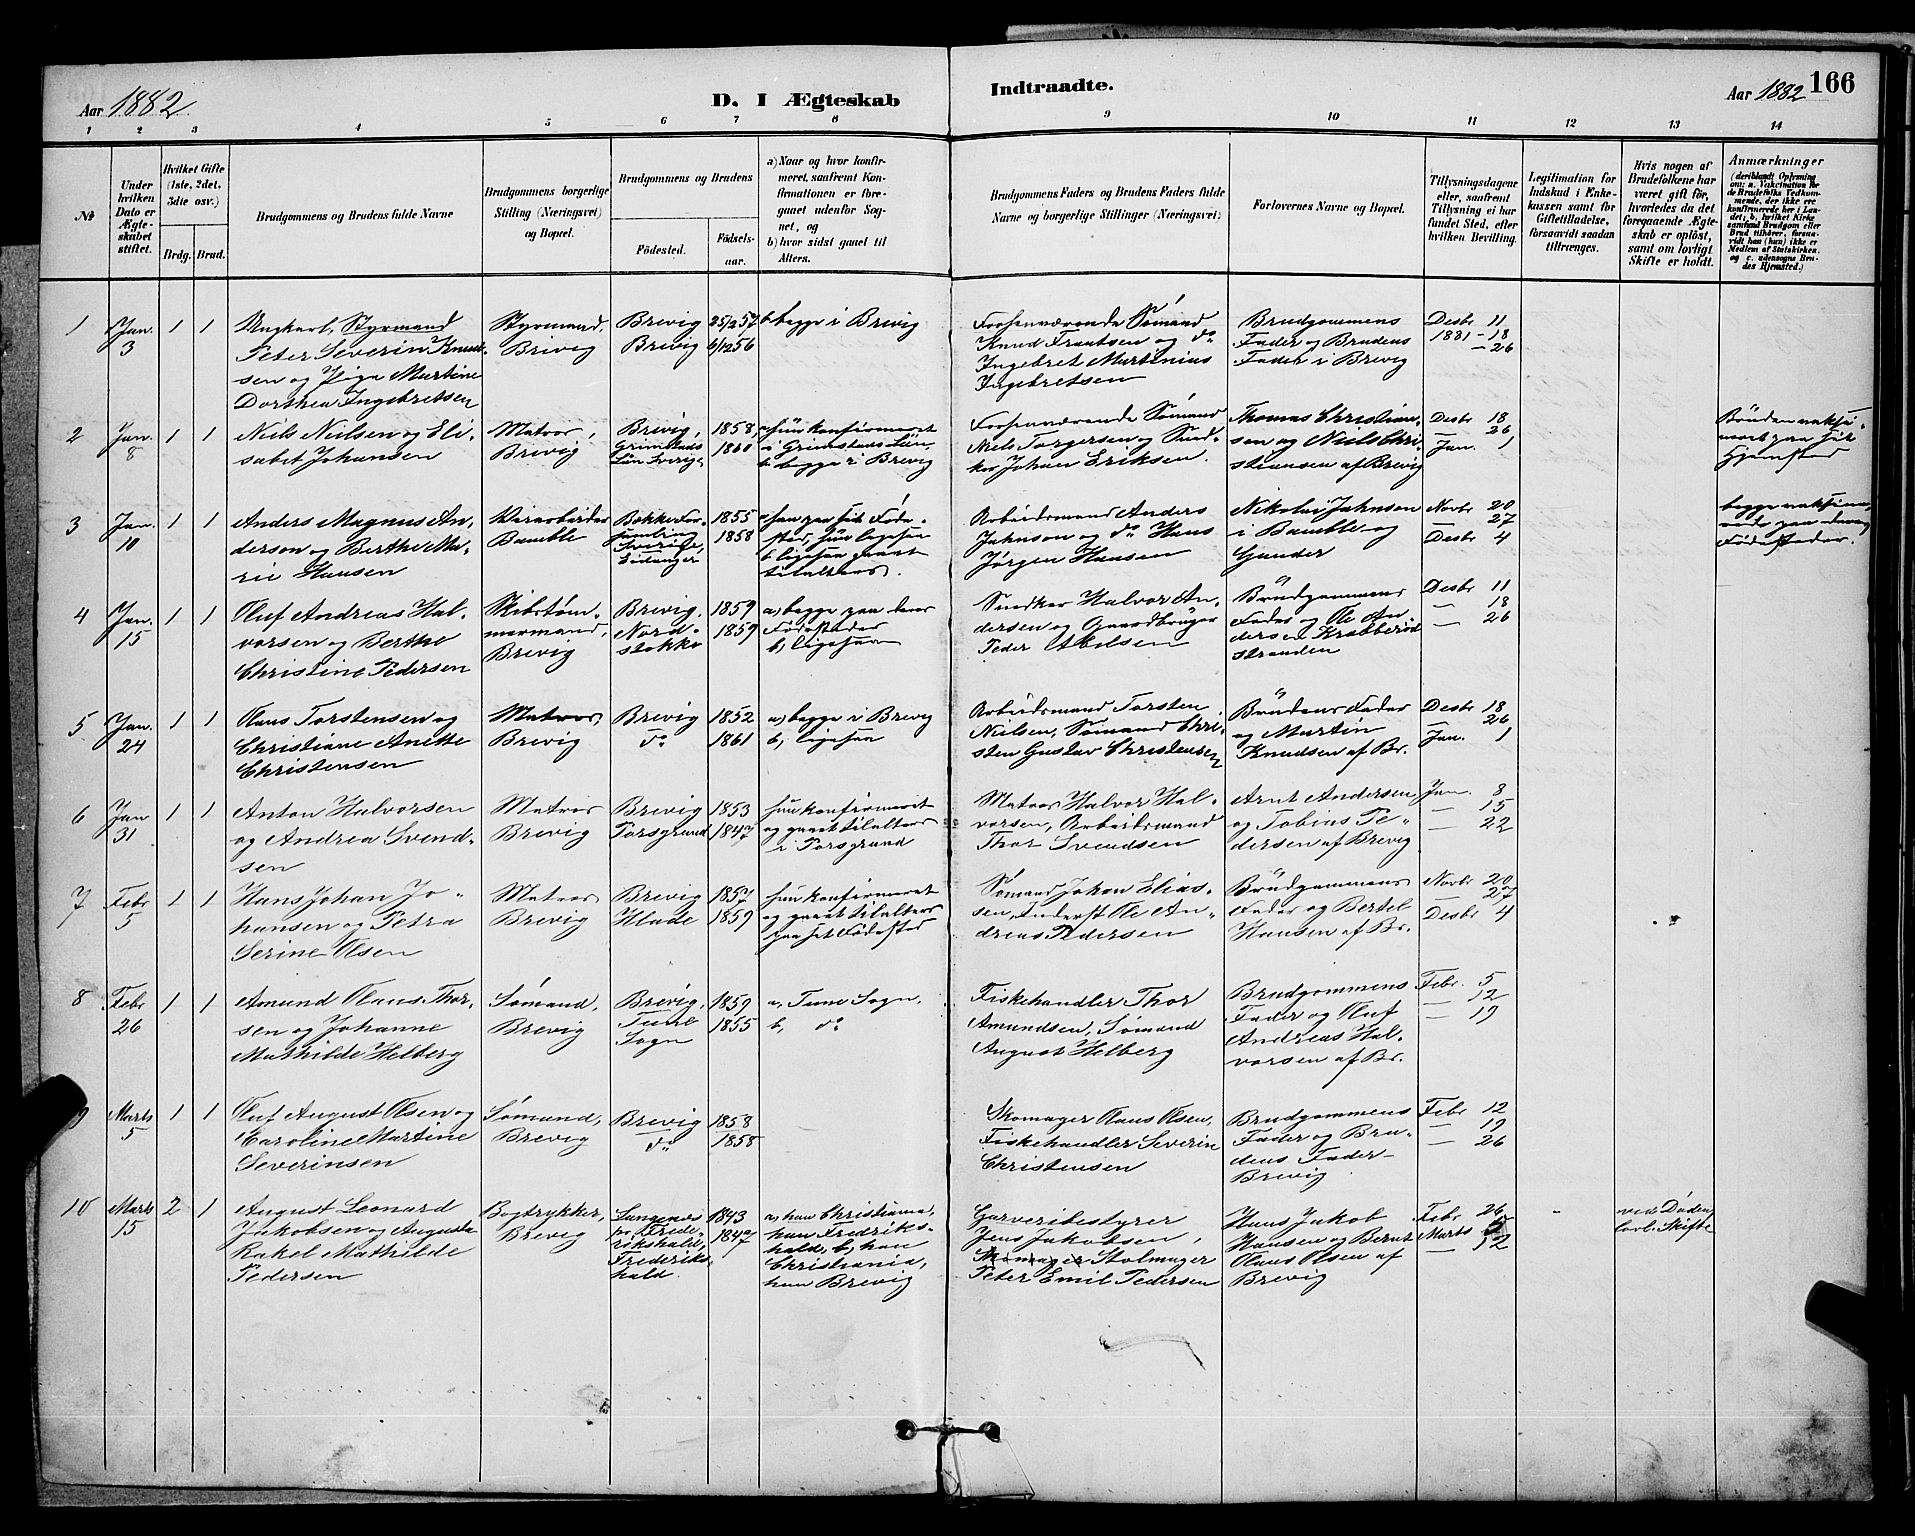 Aar 1882.
D. I Ægteskab
Indtraadte.
Aar 1882
166
1 2 3 4 5 6 7 8 9 10 11 12 13 14
№
Under hvilken Dato er Ægteskabet stiftet.
Hvilket Gifte (1ste, 2det, 3die osv.)
Brdg. Brud.
Brudgommens og Brudens fulde Navne
Brudgommens borgerlige Stilling (Næringsvei) og Bopæl.
Brudgommens og Brudens
Fødested.
Fødsels-aar.
a) Naar og hvor konfirmeret, saafremt Konfirmationen er foregaaet udenfor Sognet, og
b) hvor sidst gaaet til Alters.
Brudgommens Faders og Brudens Faders fulde Navne og borgerlige Stillinger (Næringsvei)
Forlovernes Navne og Bopæl.
Tillysningsdagene eller, saafremt Tillysning ei har fundet Sted, efter hvilken Bevilling.
Legitimation for Indskud i Enkekassen samt for Giftetilladelse, forsaavidt saadan tiltrænges.
Hvis nogen af Brudefolkene har været gift før, hvorledes da det foregaaende Ægteskab er opløst, samt om lovligt Skifte er holdt.
Anmærkninger (deriblandt Oplysning om: a. Vakcination for de Brudefolks Vedkommende, der ikke ere konfirmerede her i Landet, b. hvilket Kirkesamfund Brudgom eller Brud tilhører, forsaavidt han (hun) ikke er Medlem af Statskirken, og c. udensogns Brudes Hjemsted.)
1 Jan. 3 1 1
Ungkarl, Styrmand
Peter Severin Knud-
sen og Pige Martine
Dorthea Ingebretsen
Styrmand,
Brevig
Brevig 25/2 57
Brevig 6/12 56
b begge i Brevig
Forhenværende Sømand
Knud Frantsen og do
Ingebret Martinius
Ingebretsen
Brudgommens
Fader og Brudens
Fader i Brevig
Desbr 11
1881 - 18
- 26
2 Jan. 8 1 1
Niels Nielsen og Eli-
sabet Johansen
Matros,
Brevig
Brevig, 1858,
Grimstads 1860
Län Sverig
a hun konfirmeret
i Grimstads Län,
b begge i Brevig
Forhenværende Sømand
Niels Torgersen og Sned-
ker Johan Eriksen.
Thomas Christian-
sen og Niels Chri-
stiansen af Brevig
Desbr 18
— 26
Jan. 1
Bruden vaksi-
neret paa sit
Hjemsted
3 Jan. 10 1 1
Anders Magnus An-
derson og Berthe Ma-
rie Hansen
Bamble
1855
Sverige, 1858
Eidanger
a han paa sit Føde-
sted, hun ligesaa
b ligesaa gaaet
tilalters.
Arbeidsmand Anders
Johnson og do Hans
Jørgen Hansen
Nikolai Johnson
i Bamble og
Gunder
Novbr 20
— 27
Desbr 4
begge vaksine-
rede paa deres
Fødesteder.
4 Jan. 15 1 1
Oluf Andreas Hal-
vorsen og Berthe
Christine Pedersen
Skibstøm-
mermand,
Brevig
Brevig, 1859
Nord- 1859
stokke
a, begge paa deres
Fødesteder
b, ligesaa
Snedker Halvor An-
dersen og Gaardbruger
Peder Abelsen
Brudgommens
Fader og Ole An-
dersen Krabberød-
stranden
Desbr 11
— 18
— 26
5 Jan. 24 1 1
Claus Torstensen og
Christiane Anette
Christensen
Matros,
Brevig
Brevig 1852
do 1861
a, begge i Brevig
b, ligesaa
Arbeidsmand Torsten
Nielsen, Sømand Chri-
sten Gustav Christensen
Brudens Fader
og Martin
Knudsen af Br.
Desbr 18
— 26
Jan. 1
6 Jan 31 1 1
Anton Halvorsen
og Andrea Svend-
sen
Matros
Brevig
Brevig 1853
Porsgrund 1847
hun konfirmeret
og gaaet tilalters
i Porsgrund
Matros Halvor Hal-
vorsen, Arbeidsmand
Thor Svendsen
Arnt Andersen
og Tobias Pe-
dersen af Brevig
Jan. 8
— 15
— 22
7 Febr 5 1 1
Hans Johan Jo-
hansen og Petra
Serine Olsen
Matros
Brevig
Brevig 1857
1859
hun konfirmeret
og gaaet tilalters
paa sit Fødested
Sømand Johan Elias-
sen, Inderst Ole An-
dreas Pedersen
Brudgommens
Fader og Bertel
Hansen af Br.
Novbr 20
— 27
Desbr 4
8 Febr 26 1 1
Amund Claus Thor-
sen og Johanne
Mathilde Helberg
Sømand,
Brevig
Brevig, 1859
Tune 1855
Sogn
a, Tune Sogn,
b, do
Fiskehandler Thor
Amundsen, Sømand
August Helberg
Brudgommens
Fader og Oluf
Andreas Hal-
vorsen af Br.
Febr. 5
— 12
— 19
9 Marts 5 1 1
Oluf August Olsen og
Caroline Martine
Severinsen
Sømand,
Brevig
Brevig 1858
do 1858
Skomager Claus Olsen,
Fiskehandler Severin
Christensen
Brudgommens
Fader og Bru-
dens Fader-
Brevig
Febr 12
— 19
— 26
10 Marts 15 2 1
August Leonard
Jakobsen og Augusta
Rakel Mathilde
Pedersen
Bogtrykker,
Brevig
Langenes 1843
Frede- 1847
rikshald,
Frederiks-
hald.
a, han Christiania,
hun Fredriks-
hald, b, han
Christiania,
hun Brevig
Garveribestyrer
Jens Jakobsen,
Skomager Stolmager
Peter Emil Pedersen
Hans Jakob
Hansen og Bernt
Claus Olsen af
Brevig
Febr 26
Marts 5
— 12
ved Døden,
lovl. Skifte